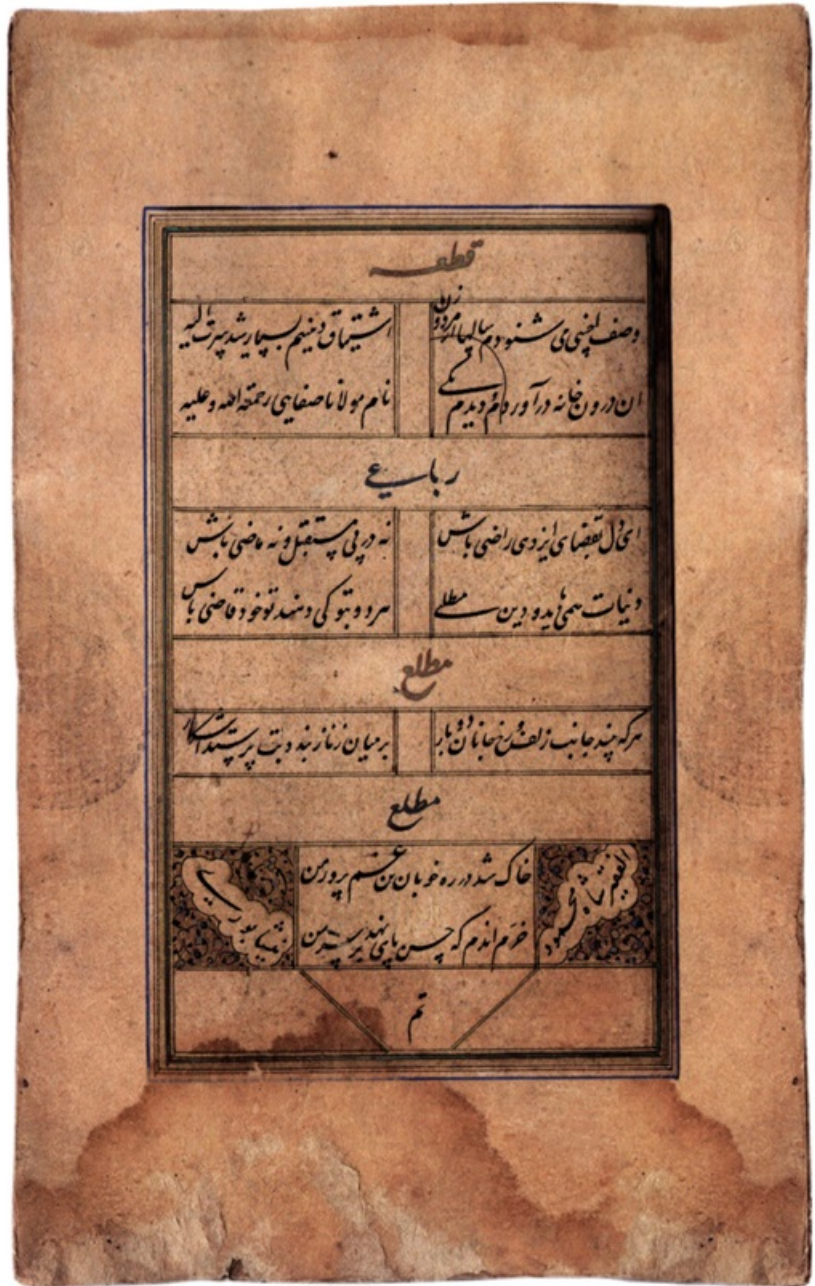 قطعه
وصف شنودم سالها از مرد و زن
اشتیاق دینیم بسیار شد
ان درون خانه در آورد دیدم
نام مولانا صفایی رحمته الله و علیه
رباعی
ای دل بقضای ایزدی راضی باش
نه در پی مستقبل و نه ماضی باش
دنیات همی باید و دین
هر دو بتو کی دهند تو خود قاضی باش
مطلع
هرکه بیند جانب زلف و رخ جانان دو بار
بر میان زنار بندد بت پرستد اشکار
مطلع
خاک شد در ره خوبان تن غم پرور من
خرم اندم که پای نهد بر سر من
الفقیر شاه محمود
نیشابوری
تم